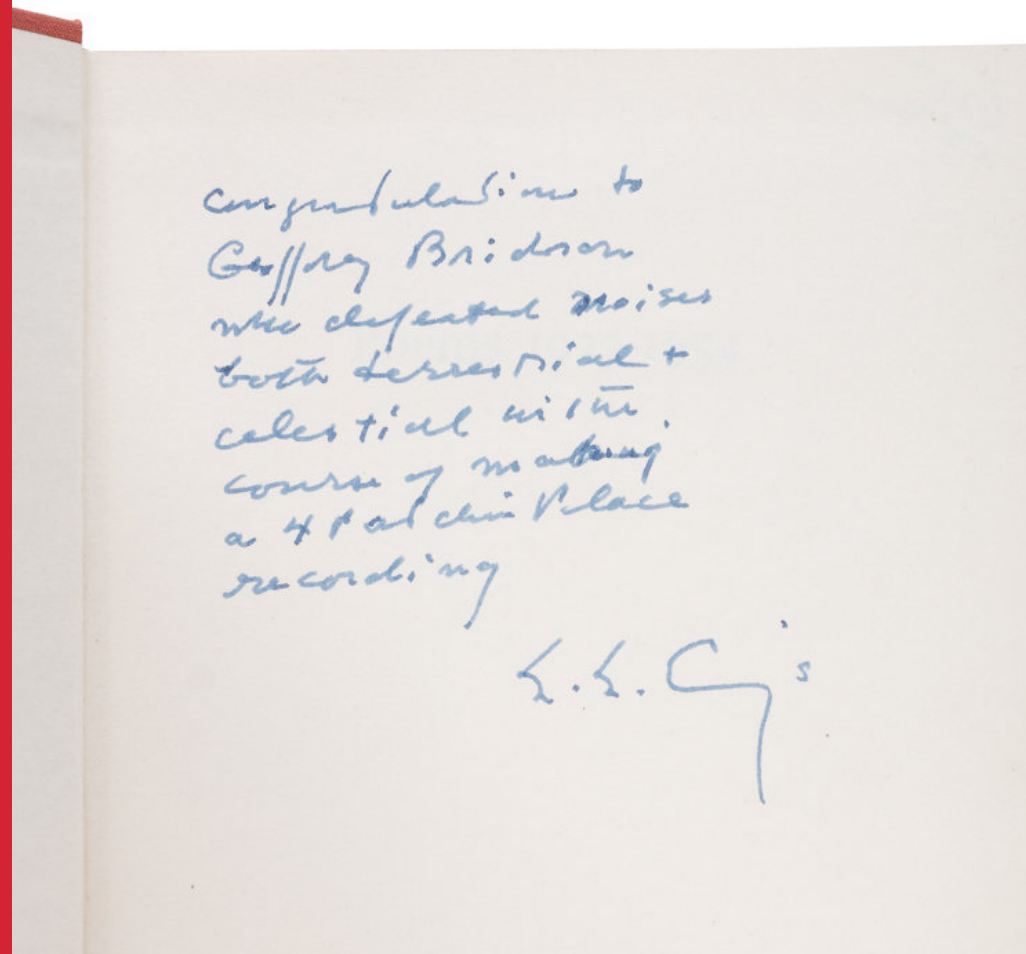 congratulations to
Geoffrey Bridson
who defeated noises
both terrestrial +
celestial in the
course of making
a 4 Patchin Place
recording
E. E. C